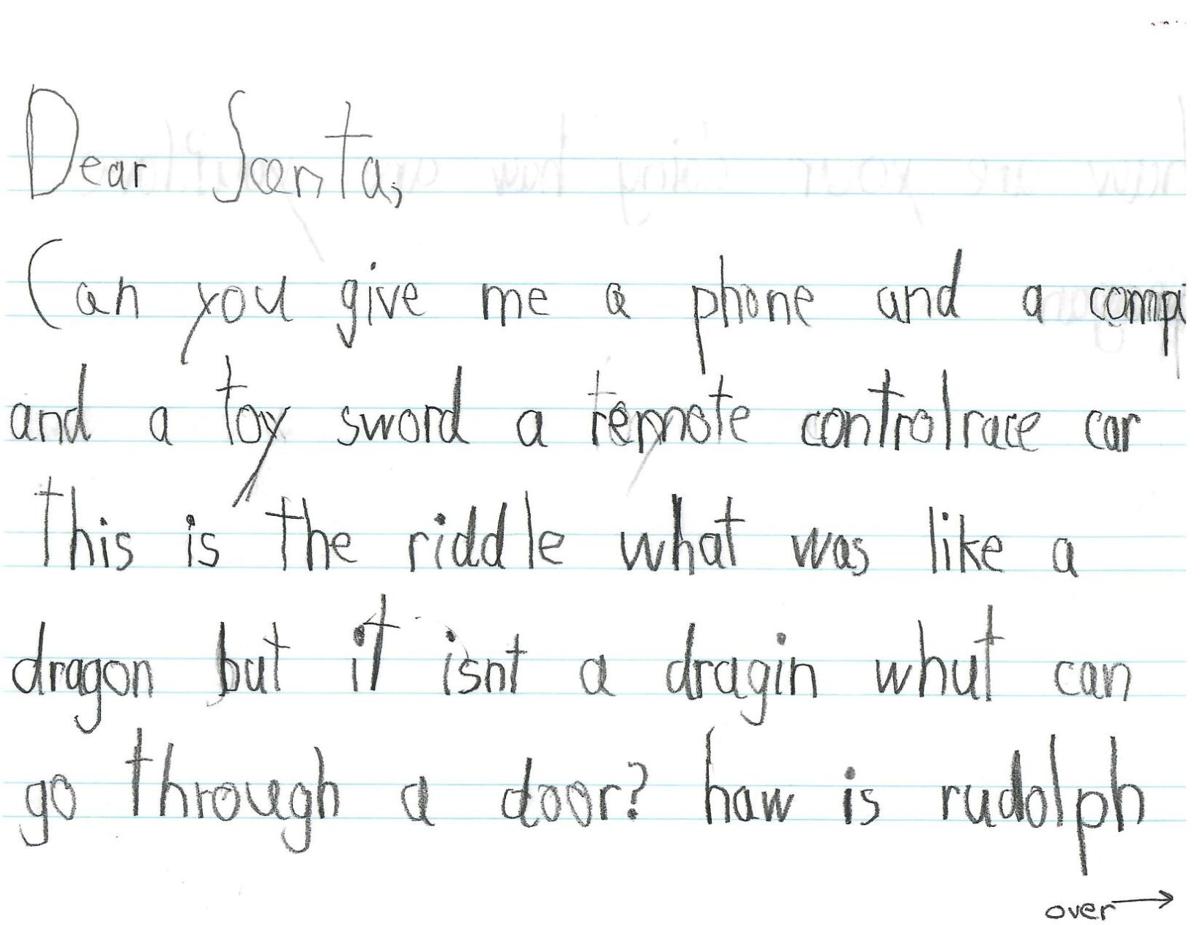 Dear Santa,
Can you give me a phone and a comp
and a toy sword a remote controlrace car
this is the riddle what was like a
dragon but it isnt a dragin whut can
go through a door? haw is rudolph
over →